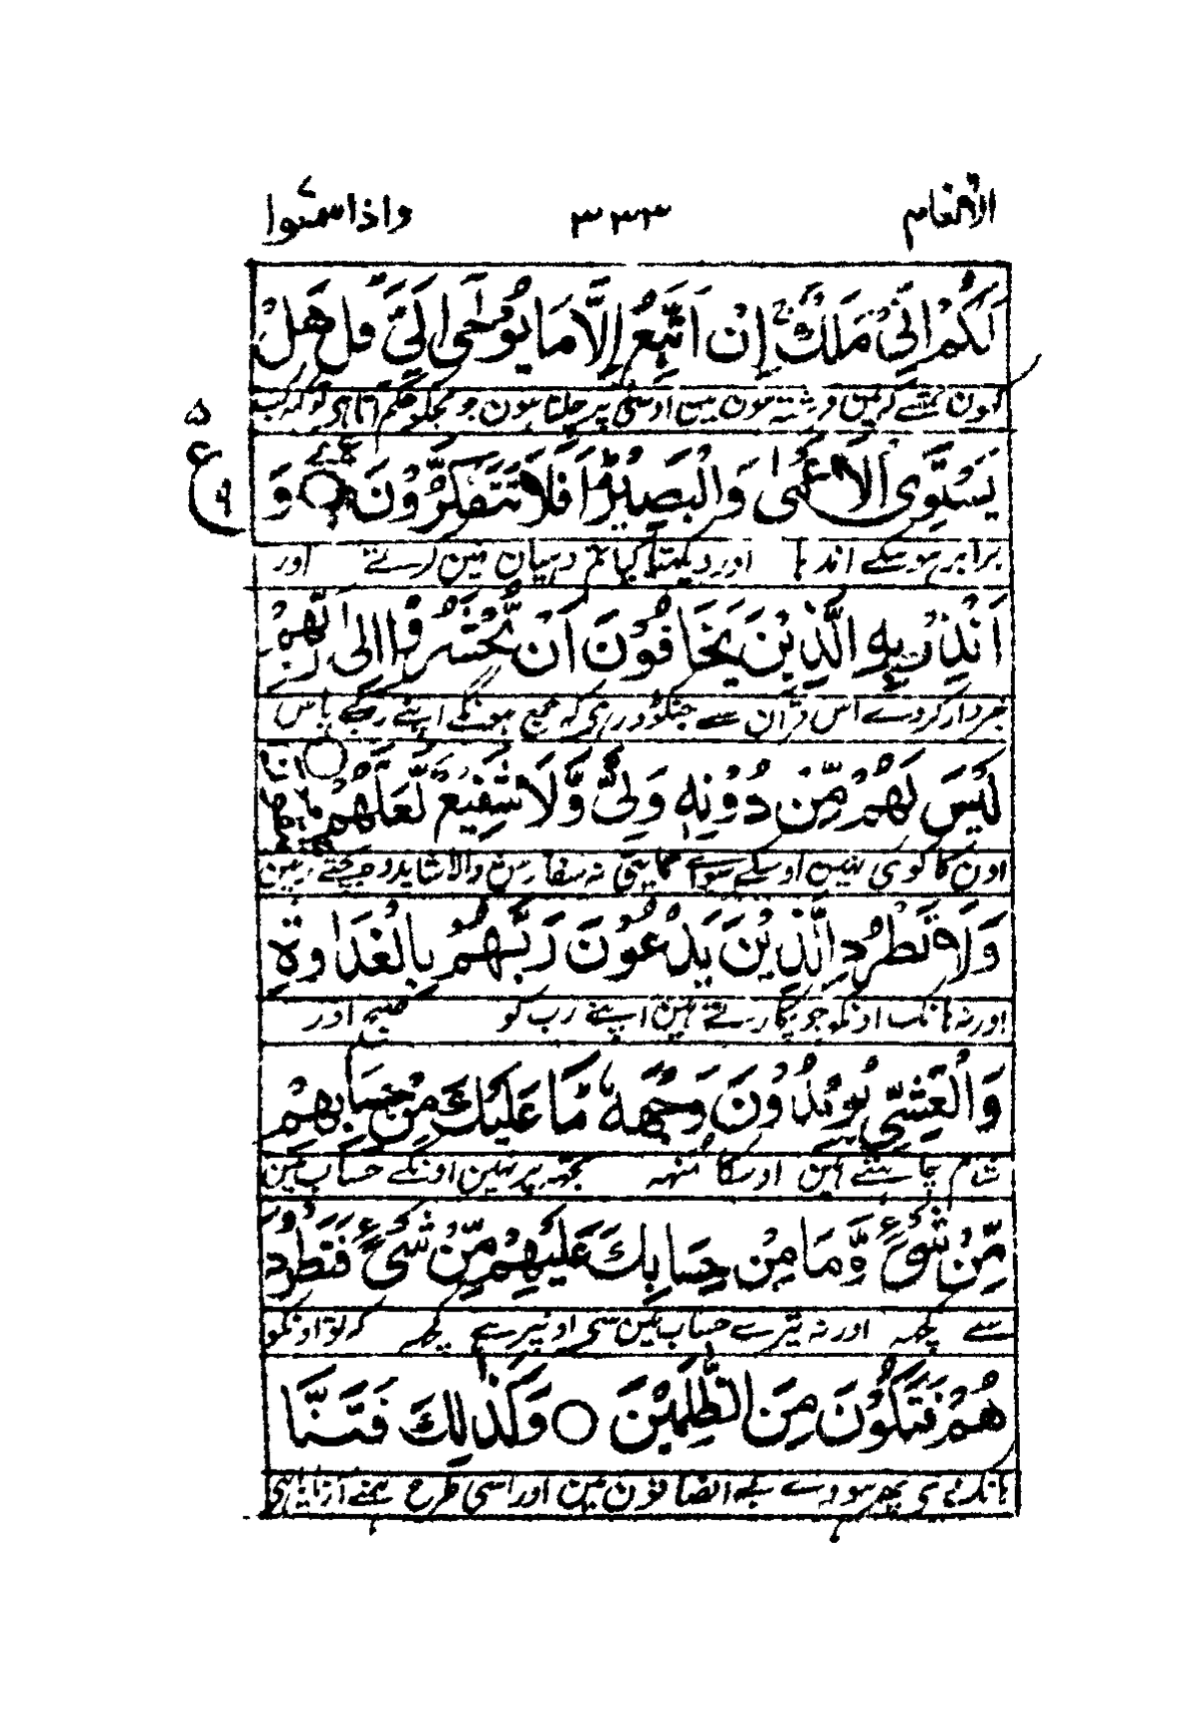 الانعام ۳۳۳ واذا سمعوا ۷
لَكُمْ اِنِّیْ مَلَكٌ ۚ اِنْ اَتَّبِعُ اِلَّا مَا یُوْحٰۤی اِلَیَّ ؕ قُلْ هَلْ
كہون تمسے كہ مین فرشتہ ہون مین اوسی پر چلتا ہون جو مجكو حكم آتا ہی تو كہہ كب
یَسْتَوِی الْاَعْمٰی وَالْبَصِیْرُ ؕ اَفَلَا تَتَفَكَّرُوْنَ ○ وَ
۵ ع ۹
برابر ہوسكے اندہا اور دیكہتا كیا تم دہیان نہین كرتے اور
اَنْذِرْ بِهِ الَّذِیْنَ یَخَافُوْنَ اَنْ یُّحْشَرُوْۤا اِلٰی رَبِّهِمْ
خبردار كردے اس قرآن سے جنكو ڈر ہی كہ جمع ہونگے اپنے ربكے پاس
لَیْسَ لَهُمْ مِّنْ دُوْنِهٖ وَلِیٌّ وَّلَا شَفِیْعٌ لَّعَلَّهُمْ یَتَّقُوْنَ ○
اونكا كوی نہین اوسكے سواے حمایتی نہ سفارش والا شاید وے بچتے رہین
وَلَا تَطْرُدِ الَّذِیْنَ یَدْعُوْنَ رَبَّهُمْ بِالْغَدٰوةِ
اور نہ ہانك اونكو جو پكارتے ہین اپنے رب كو صبح اور
وَالْعَشِیِّ یُرِیْدُوْنَ وَجْهَهٗ ؕ مَا عَلَیْكَ مِنْ حِسَابِهِمْ
شام چاہتے ہین اوسكا منہہ تجہہ پر نہین اونكے حساب مین
مِّنْ شَیْءٍ وَّمَا مِنْ حِسَابِكَ عَلَیْهِمْ مِّنْ شَیْءٍ فَتَطْرُدَ
سے كچہہ اور نہ تیرے حساب مین سے اونپر ہے كچہہ كہ تو اونكو
هُمْ فَتَكُوْنَ مِنَ الظّٰلِمِیْنَ ○ وَكَذٰلِكَ فَتَنَّا
ہانكدے پہر ہووے بے انصافون مین اور اسی طرح ہمنے آزمایا ہی